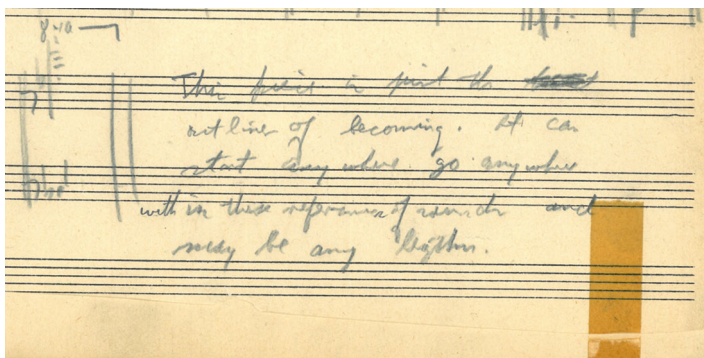 8va
This piece is just the
outline of becoming. It can
start anywhere go anywhere
within these references of sounds and
may be any length.